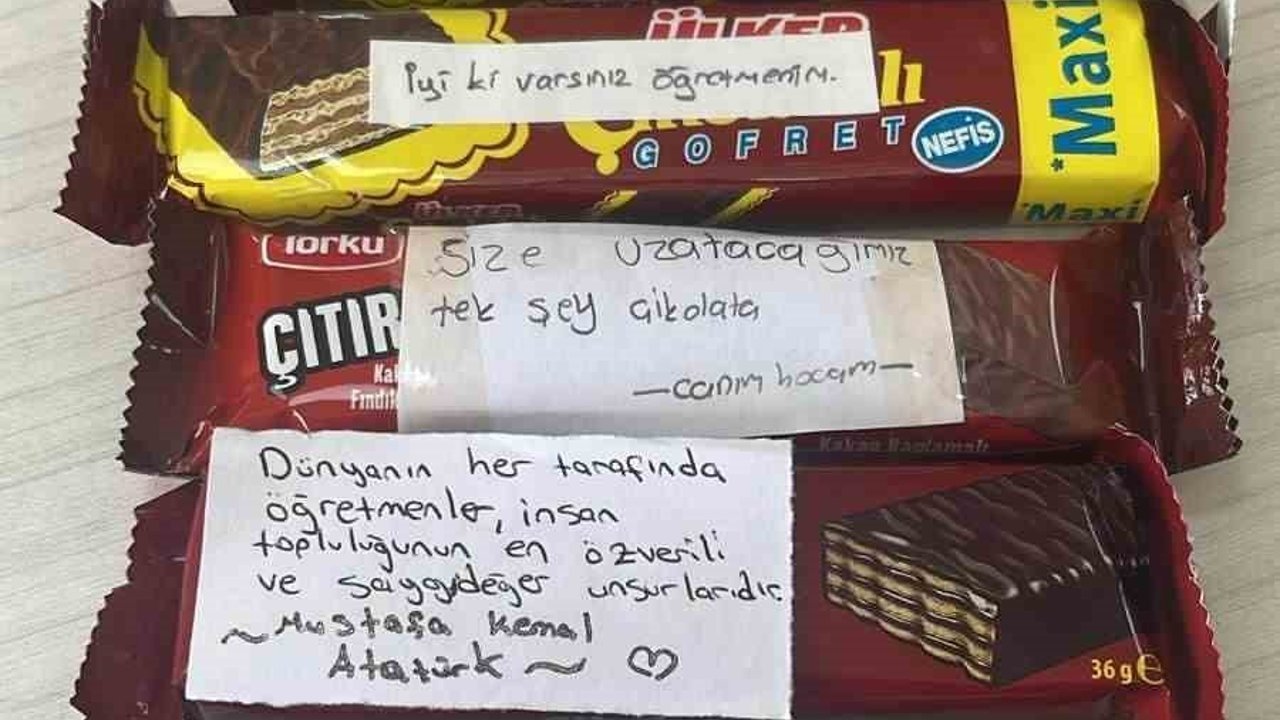 ÜLKER
İyi ki varsınız öğretmenim.
GOFRET
NEFİS
*Maxi
*Maxi
ÜLKER
Torku
ÇITIR
Size uzatacağımız
tek şey çikolata
—canım hocam—
Dünyanın her tarafında
öğretmenler, insan
topluluğunun en özverili
ve saygıdeğer unsurlarıdır.
~Mustafa Kemal
Atatürk ~ ♡
Kakao Kaplamalı
36 g e